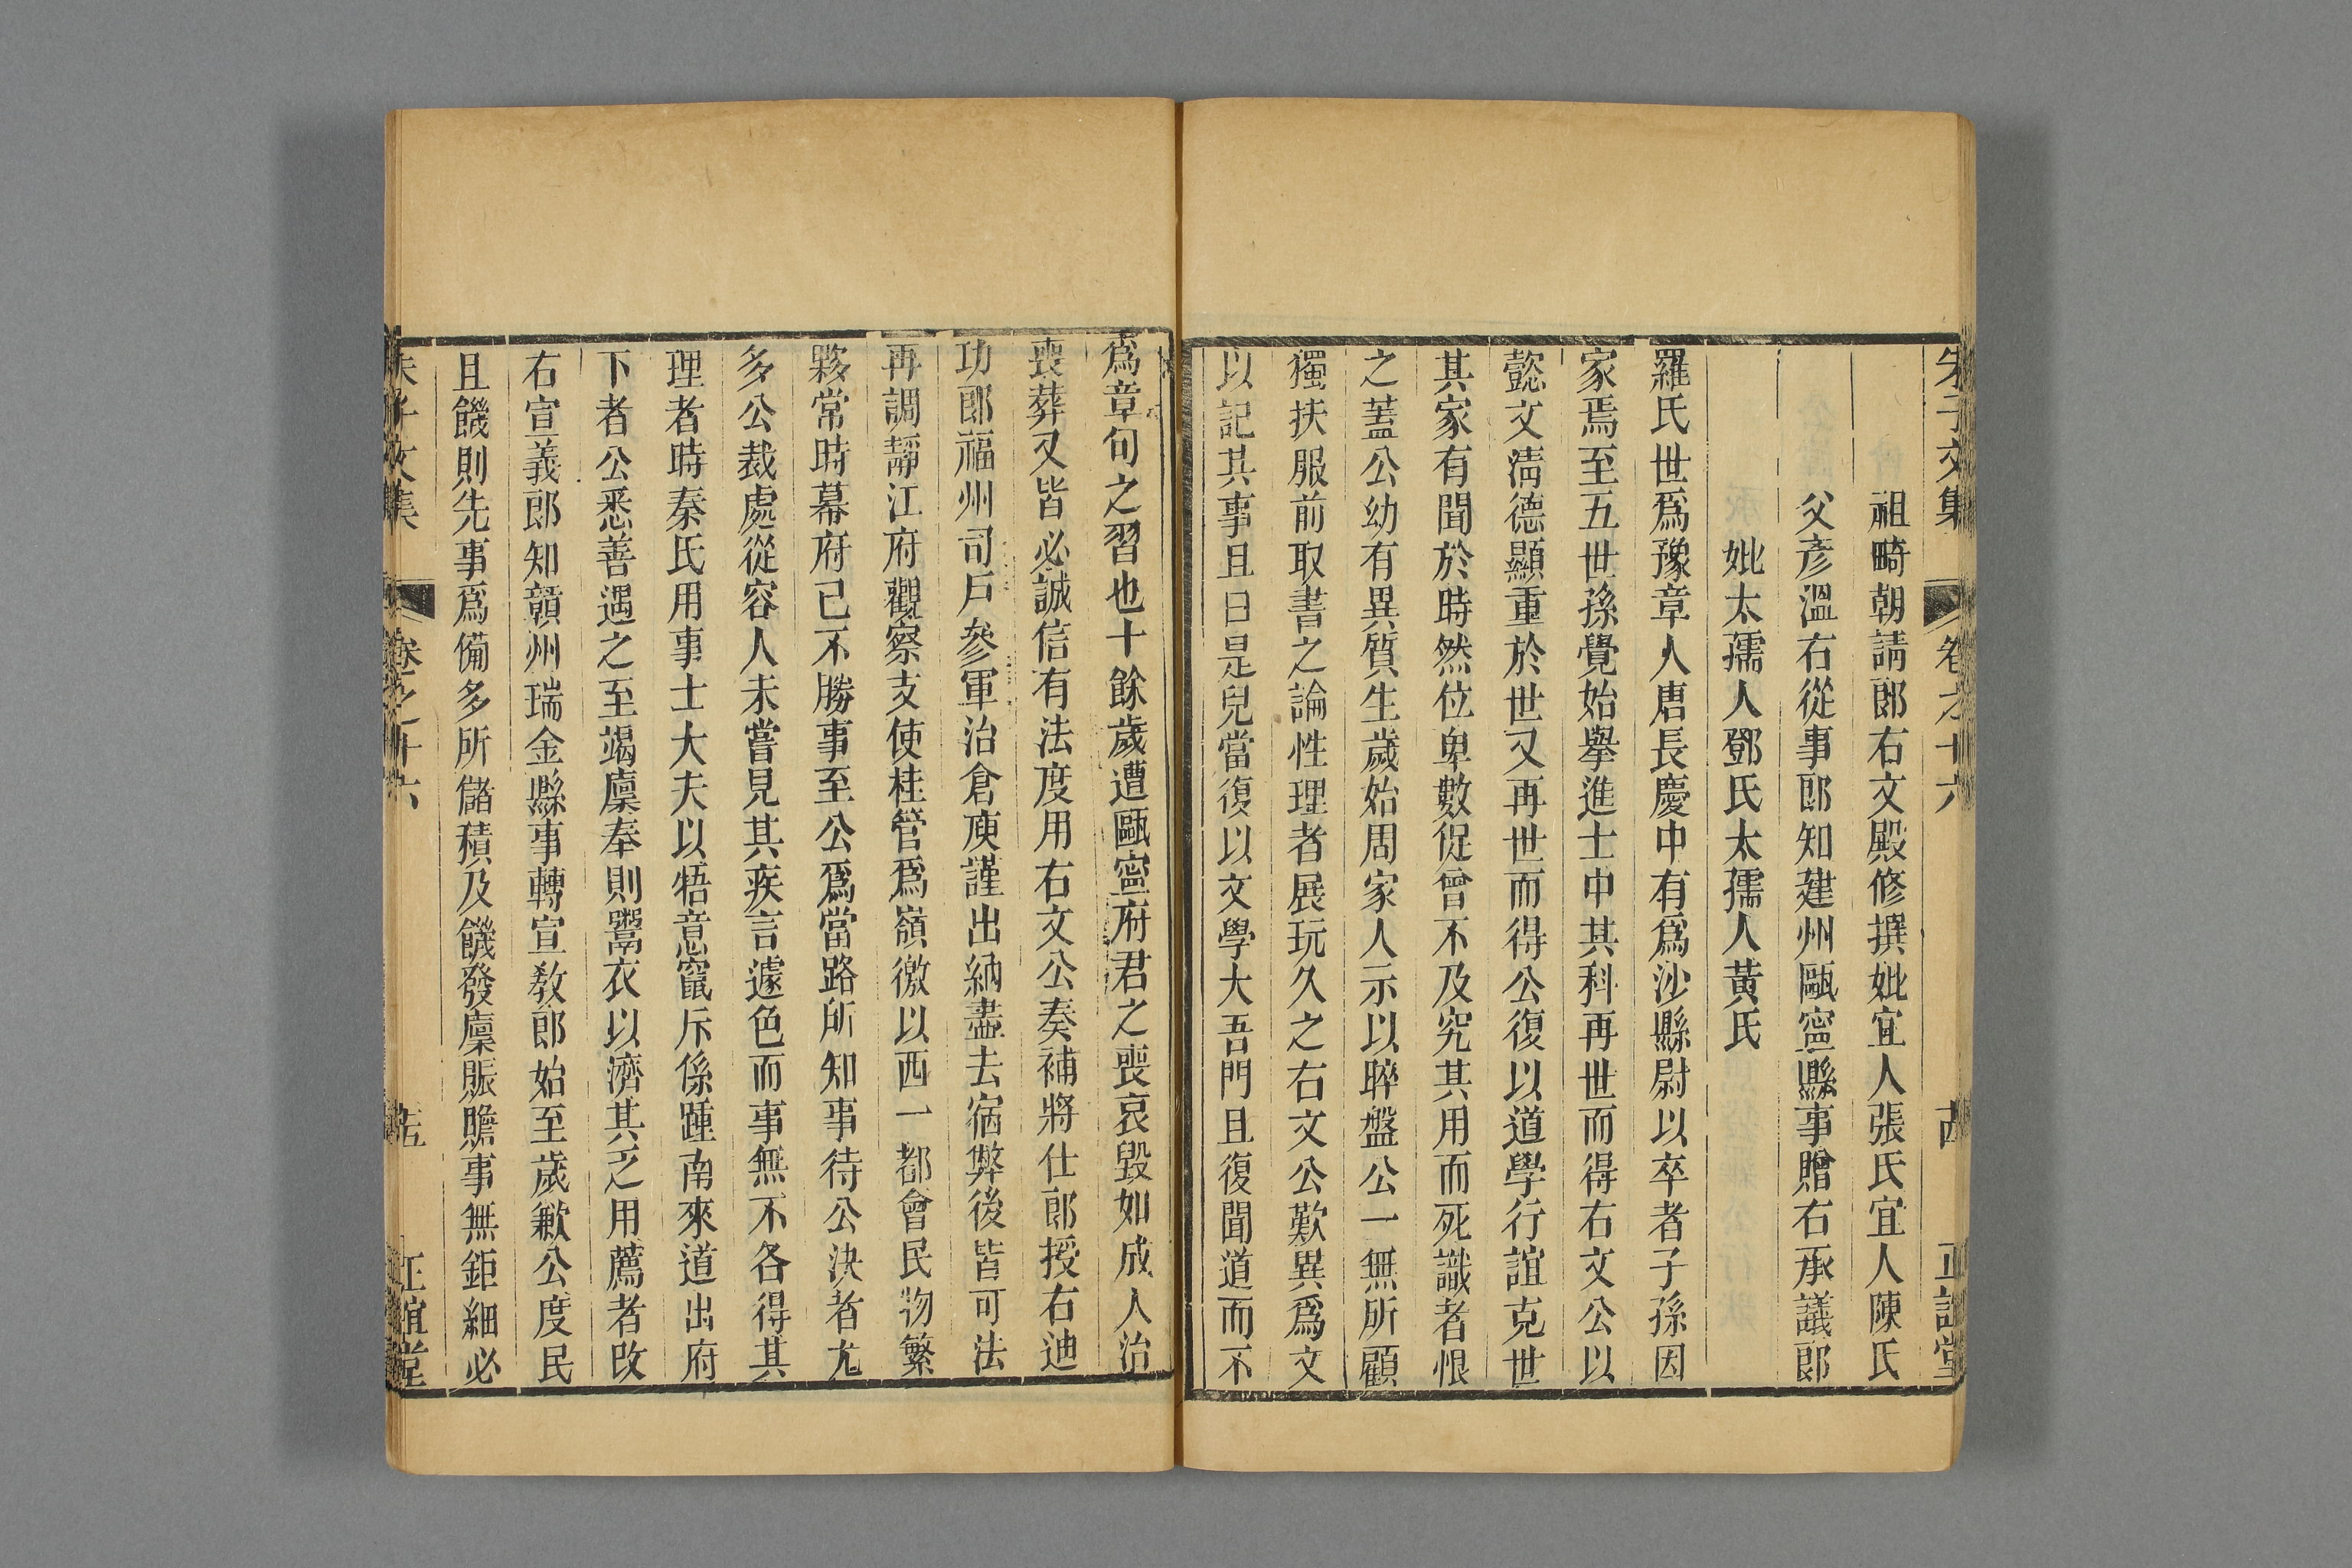 朱子文集 卷之十六 十四 正誼堂
祖畸朝請郎右文殿修撰妣宜人張氏宜人陳氏
父彥溫右從事郎知建州甌寧縣事贈右承議郎
妣太孺人鄧氏太孺人黃氏
羅氏世爲豫章人唐長慶中有爲沙縣尉以卒者子孫因
家焉至五世孫覺始舉進士中其科再世而得右文公以
懿文淸德顯重於世又再世而得公復以道學行誼克世
其家有聞於時然位卑數促曾不及究其用而死識者恨
之蓋公幼有異質生歲始周家人示以晬盤公一無所顧
獨扶服前取書之論性理者展玩久之右文公歎異爲文
以記其事且曰是兒當復以文學大吾門且復聞道而不
爲章句之習也十餘歲遭甌寧府君之喪哀毀如成人治
喪葬又皆必誠信有法度用右文公奏補將仕郎授右迪
功郎福州司戶參軍治倉庾謹出納盡去宿弊後皆可法
再調靜江府觀察支使桂管爲嶺徼以西一都會民物繁
夥常時幕府已不勝事至公爲當路所知事待公決者尤
多公裁處從容人未嘗見其疾言遽色而事無不各得其
理者時秦氏用事士大夫以牾意竄斥係踵南來道出府
下者公悉善遇之至竭廩奉則鬻衣以濟其乏用薦者改
右宣義郎知贛州瑞金縣事轉宣敎郎始至歲歉公度民
且饑則先事爲備多所儲積及饑發廩賑贍事無鉅細必
朱子文集 卷之十六 十五 正誼堂